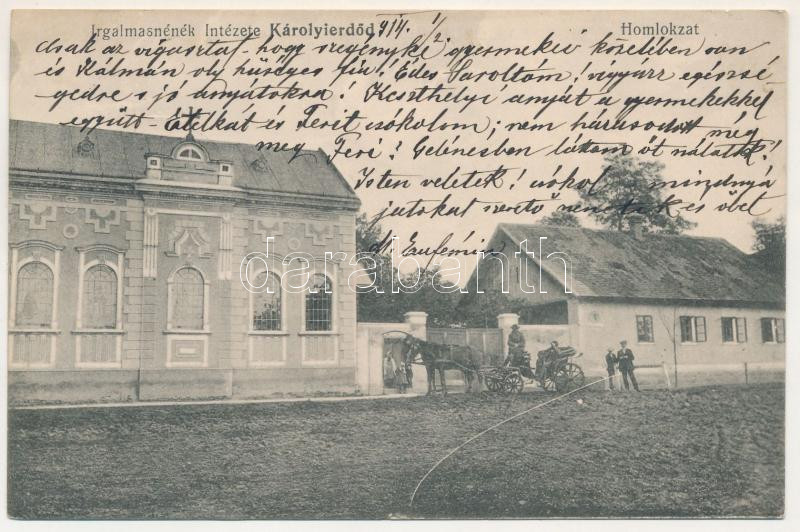 Irgalmasnénék Intézete Károlyierdőd 914.
Homlokzat
Csak az vigasztal hogy szegényké gyermekeié közelében van
és Kálmán oly hűséges fiu! Édes Saroltám! vigyázz egészsé
gedre s jó anyátokra! Keszthelyi anyját a gyermekekkel
együtt Etelkat és Terit csókolom; nem házasodott még
meg Feri? Gelénesben láttam őt nálatok!
Isten veletek! csókol mindnyá
jatokat szerető nénétek és
Eufémia
darabanth